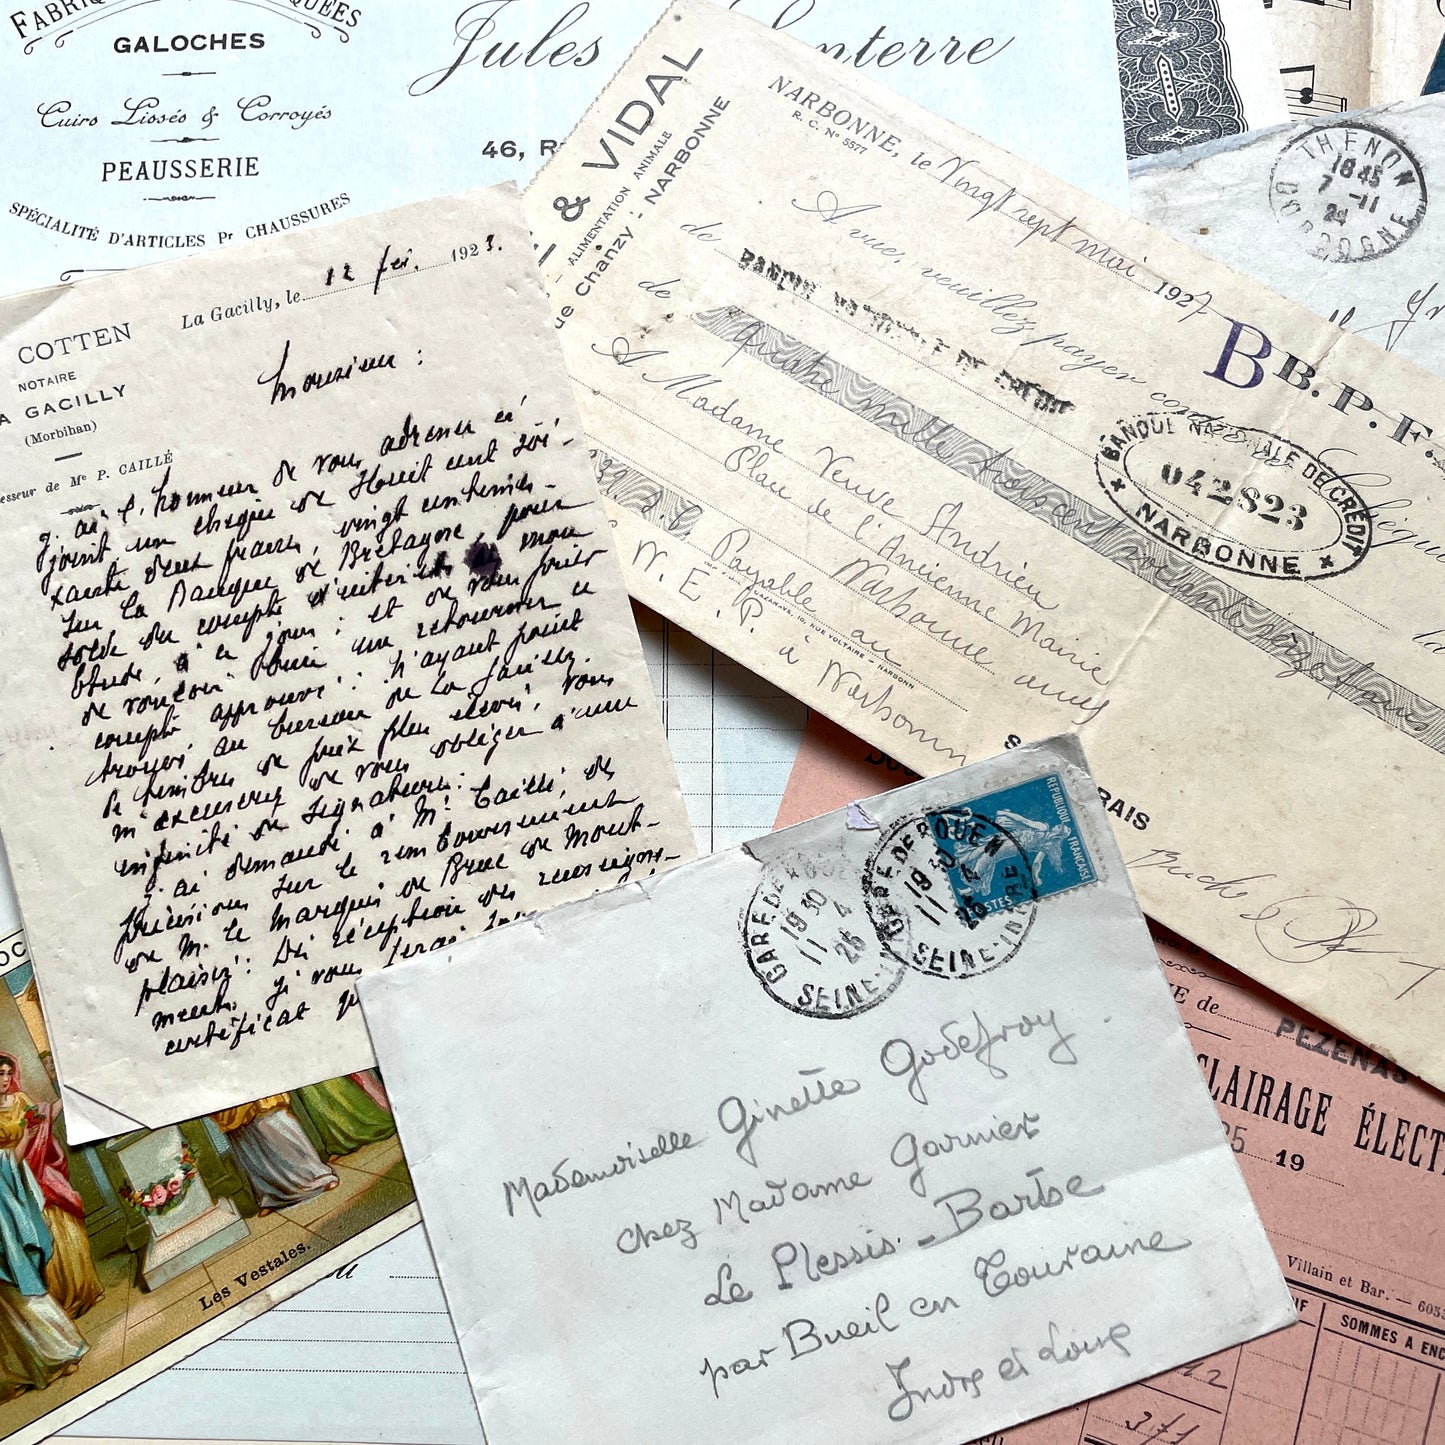 FABRIQUE
GALOCHES
Cuirs Lissés & Corroyés
PEAUSSERIE
SPÉCIALITÉ D'ARTICLES Pr CHAUSSURES
Jules
46, R
COTTEN
NOTAIRE
LA GACILLY
(Morbihan)
esseur de Me P. CAILLÉ
La Gacilly, le 12 fév. 1923.
Monsieur :
J'ai l'honneur de vous adresser ci
joint un chèque de Huit cent soi-
xante deux francs, vingt centimes
sur la Banque de Bretagne, pour
solde du compte d'intérêts mon
Etude, à ce jour : et de vous prier
de vouloir bien me retourner ce
compte approuvé : N'ayant point
trouvé au bureau de La Gacilly
de timbre de prix plus élevé, vous
m'excuserez de vous obliger à une
infinité de signatures :
J'ai demandé à Me Caillé, des
précisions sur le remboursement
de M. le Marquis de Brue de Mont-
plaisir : Dès réception des renseigne-
ments, je vous ferai
certificat
& VIDAL
ALIMENTATION ANIMALE
ue Chanzy - NARBONNE
NARBONNE, le Vingt sept mai 1927
R. C. N° 5577
A vue, veuillez payer contre
de BANQUE NATIONALE DE CRÉDIT
de Quatre mille trois cent soixante seize francs
B B. P. F.
chèque
la
A Madame Veuve Andrieu
Plan de l'Ancienne Mairie
Narbonne
Payable au
N. E. P. à Narbonne
10, RUE VOLTAIRE - NARBONN
BANQUE NATIONALE DE CRÉDIT
042823
NARBONNE
RAIS
THENON
18 45
7 -11
24
DORDOGNE
GARE DE ROUEN
19 30
11 4
25
SEINE-INRE
GARE DE ROUEN
19 30
11
SEINE-INRE
RÉPUBLIQUE FRANÇAISE
POSTES
Mademoiselle Ginette Godefroy
chez Madame Garnier
Le Plessis-Barbe
par Bueil en Touraine
Indre et Loire
Les Vestales.
E de
PEZENAS
CLAIRAGE ÉLECT
25 19
Villain et Bar. — 605
IF
SOMMES A ENC
371